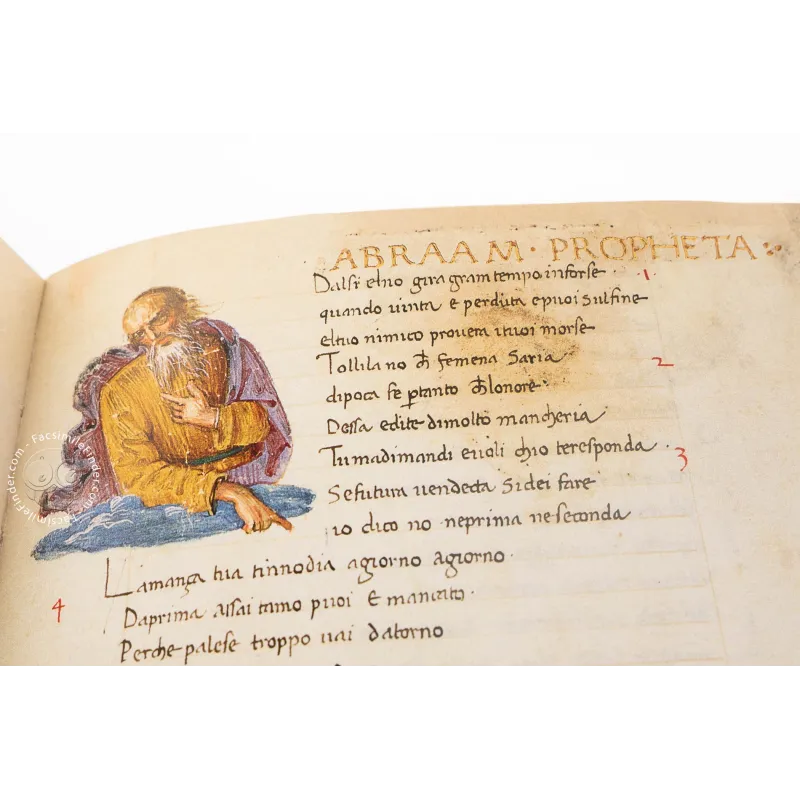 ABRAAM · PROPHETA
Dalsi elno gira gram tempo inforse · 1
quando vinta e perduta epuoi sulfine
eltuo nimico provera ituoi morse
Tollila no ch femena Saria 2
dipoca fe ptanto chlonore ·
Dessa edite dimolto mancheria
Tumadimandi evoli chio teresponda · 3
Sefutura vendecta sidei fare
io dico no neprima neseconda
Lamança tua tinnodia agiorno agiorno ·
4 Daprima assai tamo puoi E mancato ·
Perche palese troppo vai datorno
FacsimileFinder.com · FacsimileFinder.com